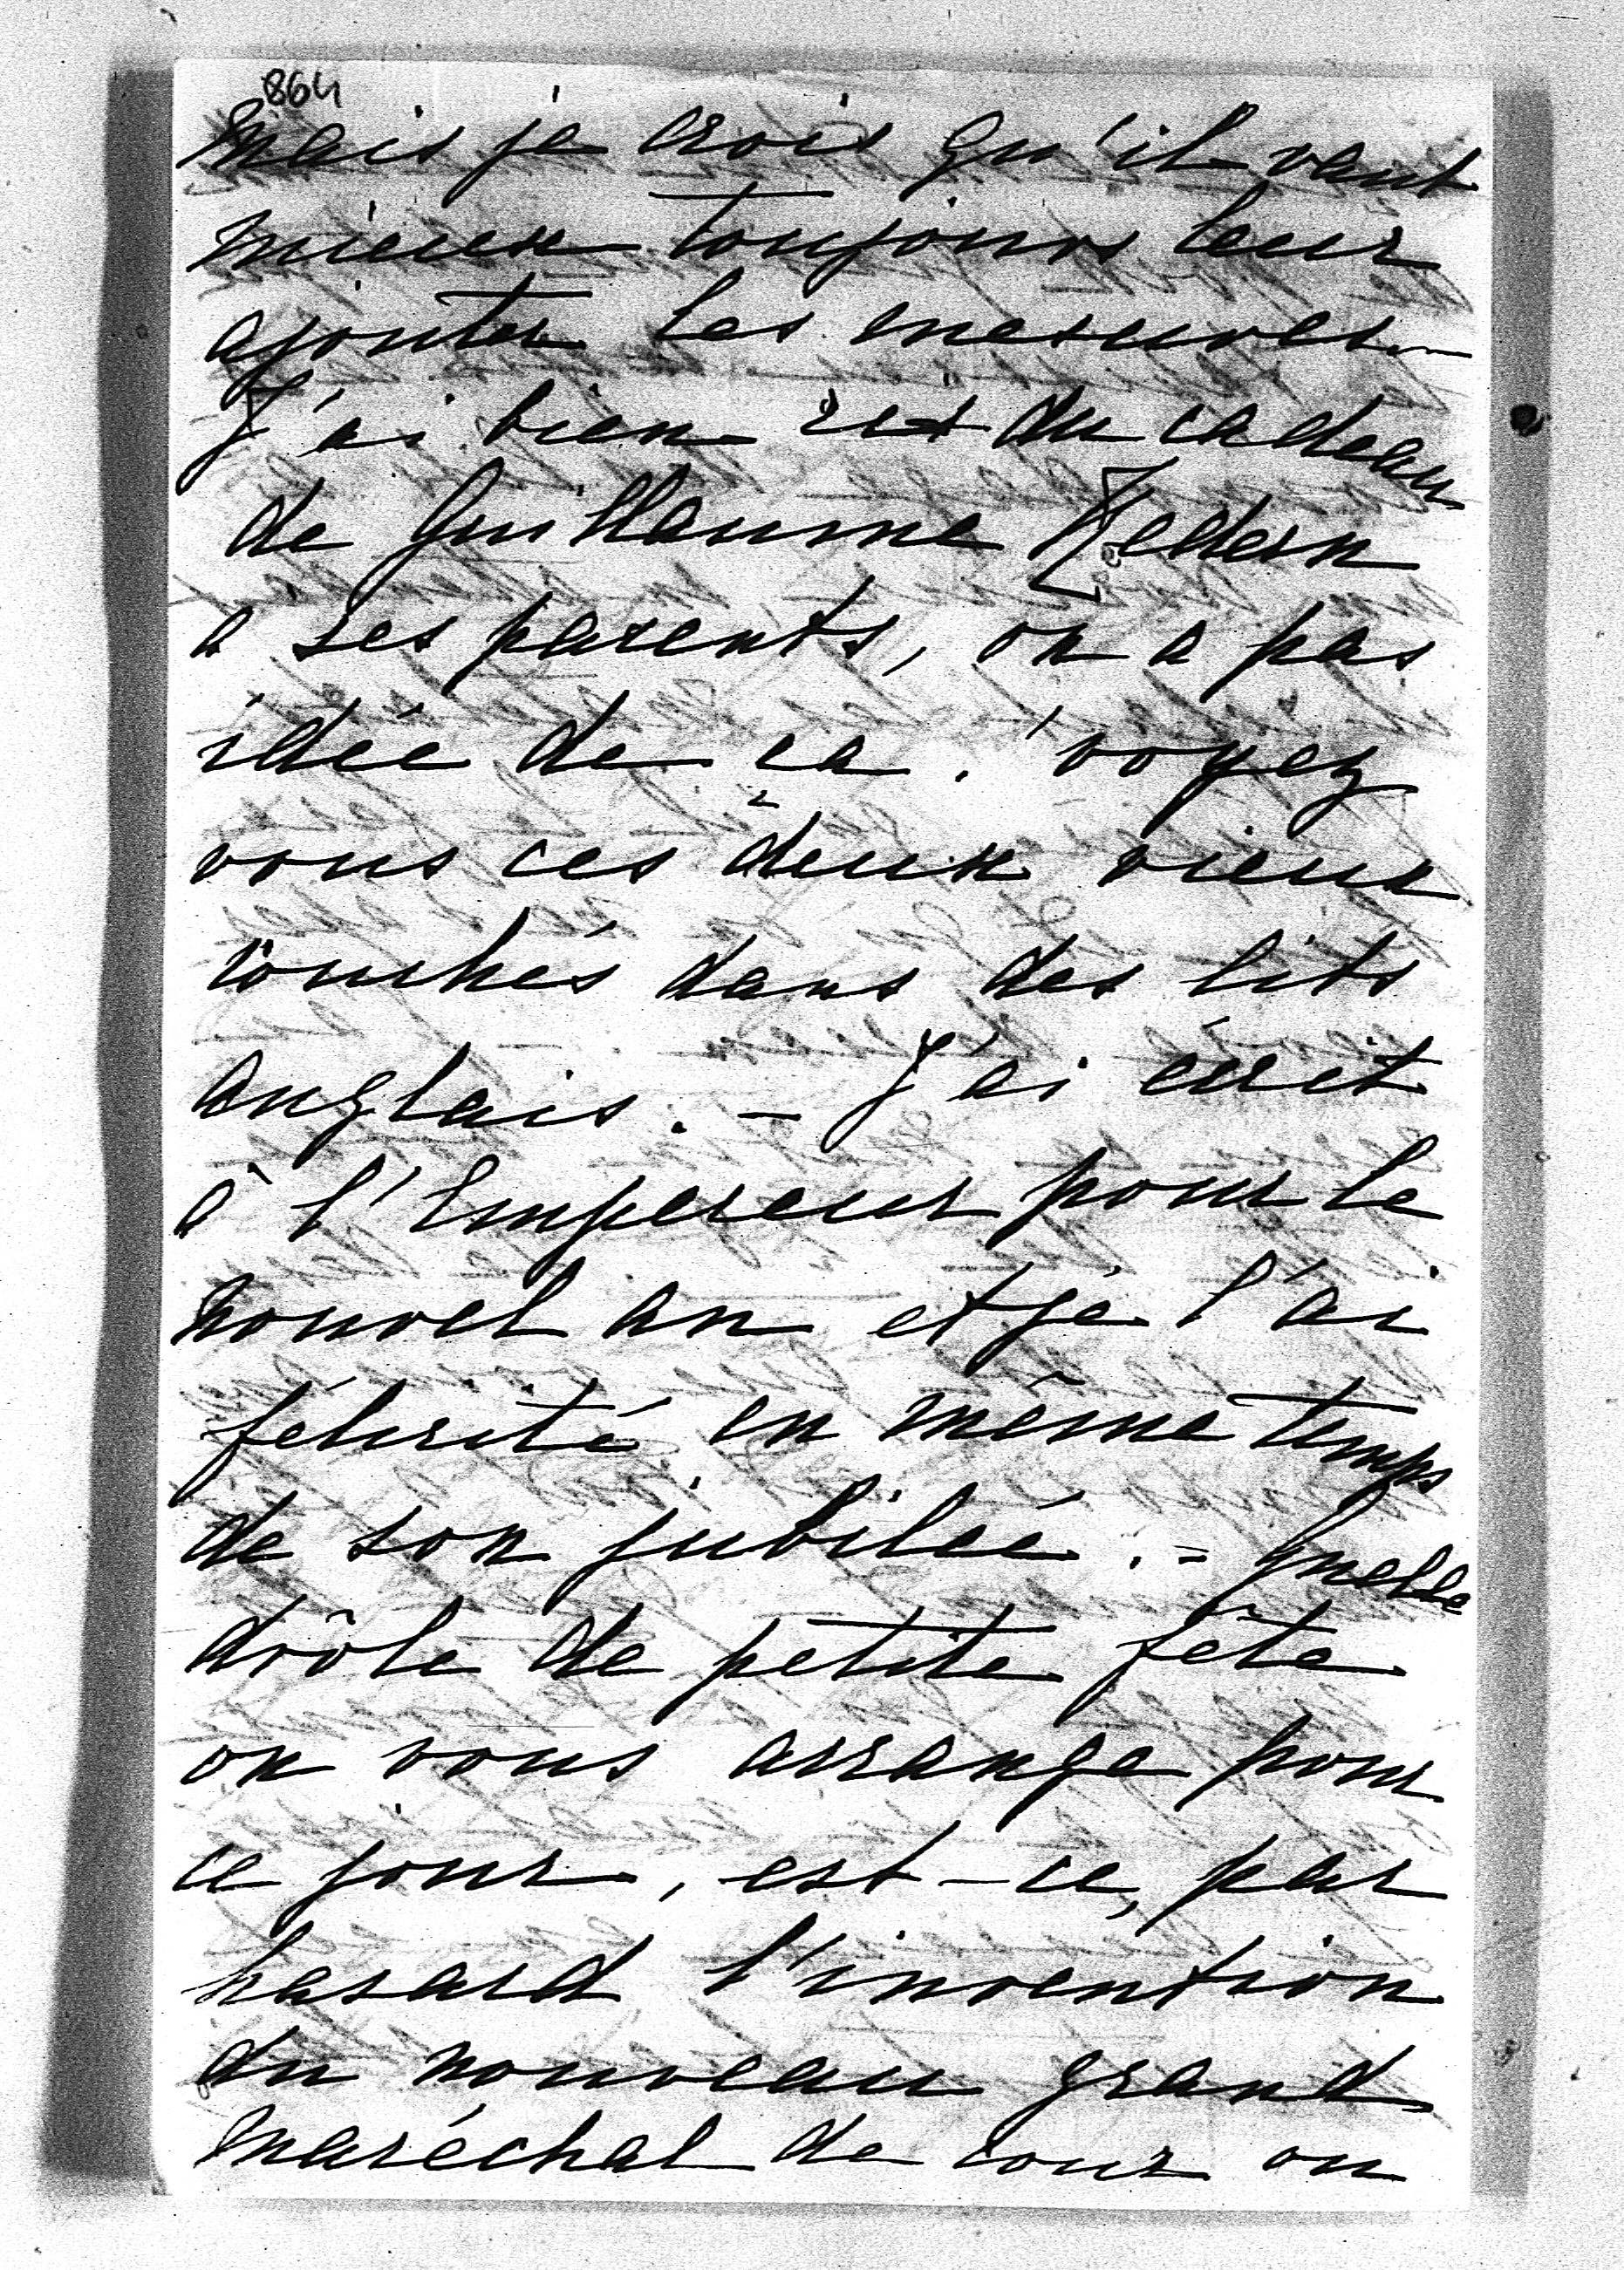 864
Mais je crois qu'il vaut
mieux toujours leur
ajouter les mesures. —
J'ai bien rit du cadeau
de Guillaume Redern
a ses parents, on a pas
idée de ça. voyez
vous ces deux vieux
couchés dans des lits
anglais. — J'ai écrit
à l'Empereur pour le
nouvel an et je l'ai
félicité en même temps
de son jubileé. = Quelle
drôle de petite fête
on vous arrange pour
ce jour, est-ce, par
hasard l'invention
du nouveau grand
Maréchal de cour ou